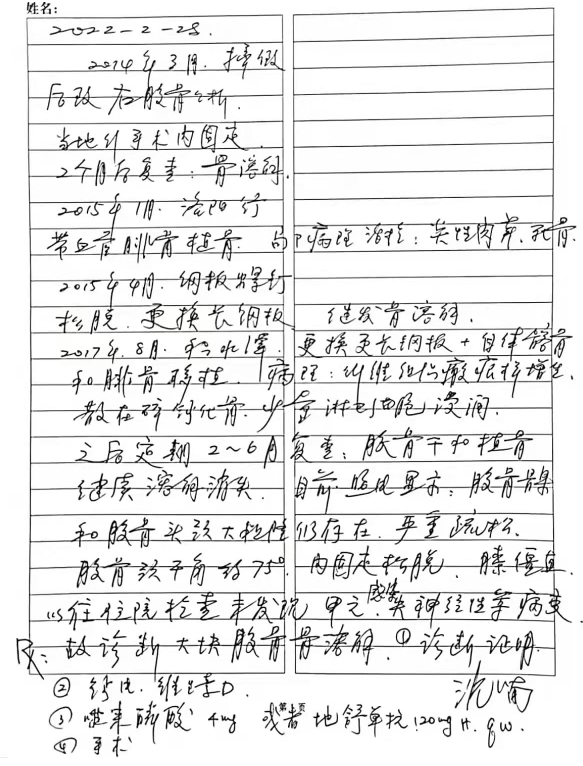 姓名:
2022-2-28.
2014年3月. 摔伤
后致右股骨骨折.
当地行手术内固定.
2个月后复查: 骨溶解.
2015年1月. 洛阳行
带血管腓骨植骨. 病理活检: 炎性肉芽, 死骨.
2015年4月. 钢板螺钉
松脱. 更换长钢板 继发骨溶解.
2017年.8月. 积水潭. 更换更长钢板 + 自体髂骨
和腓骨移植. 病理: 纤维组织瘢痕样增生.
散在碎钙化骨. 少量淋巴细胞浸润.
之后定期 2~6月复查: 股骨干和植骨
继续溶解消失. 目前照片显示: 股骨髁
和股骨头颈大粗隆仍存在. 严重疏松.
股骨颈干角约75°. 内固定松脱. 膝僵直.
以往住院检查未发现甲亢、感染、神经性等病变
Rx: 故诊断大块股骨骨溶解. ① 诊断证明.
② 钙片. 维生素D.
③ 唑来膦酸 4mg 或者地舒单抗 120mg H. qw.
第 页
④ 手术